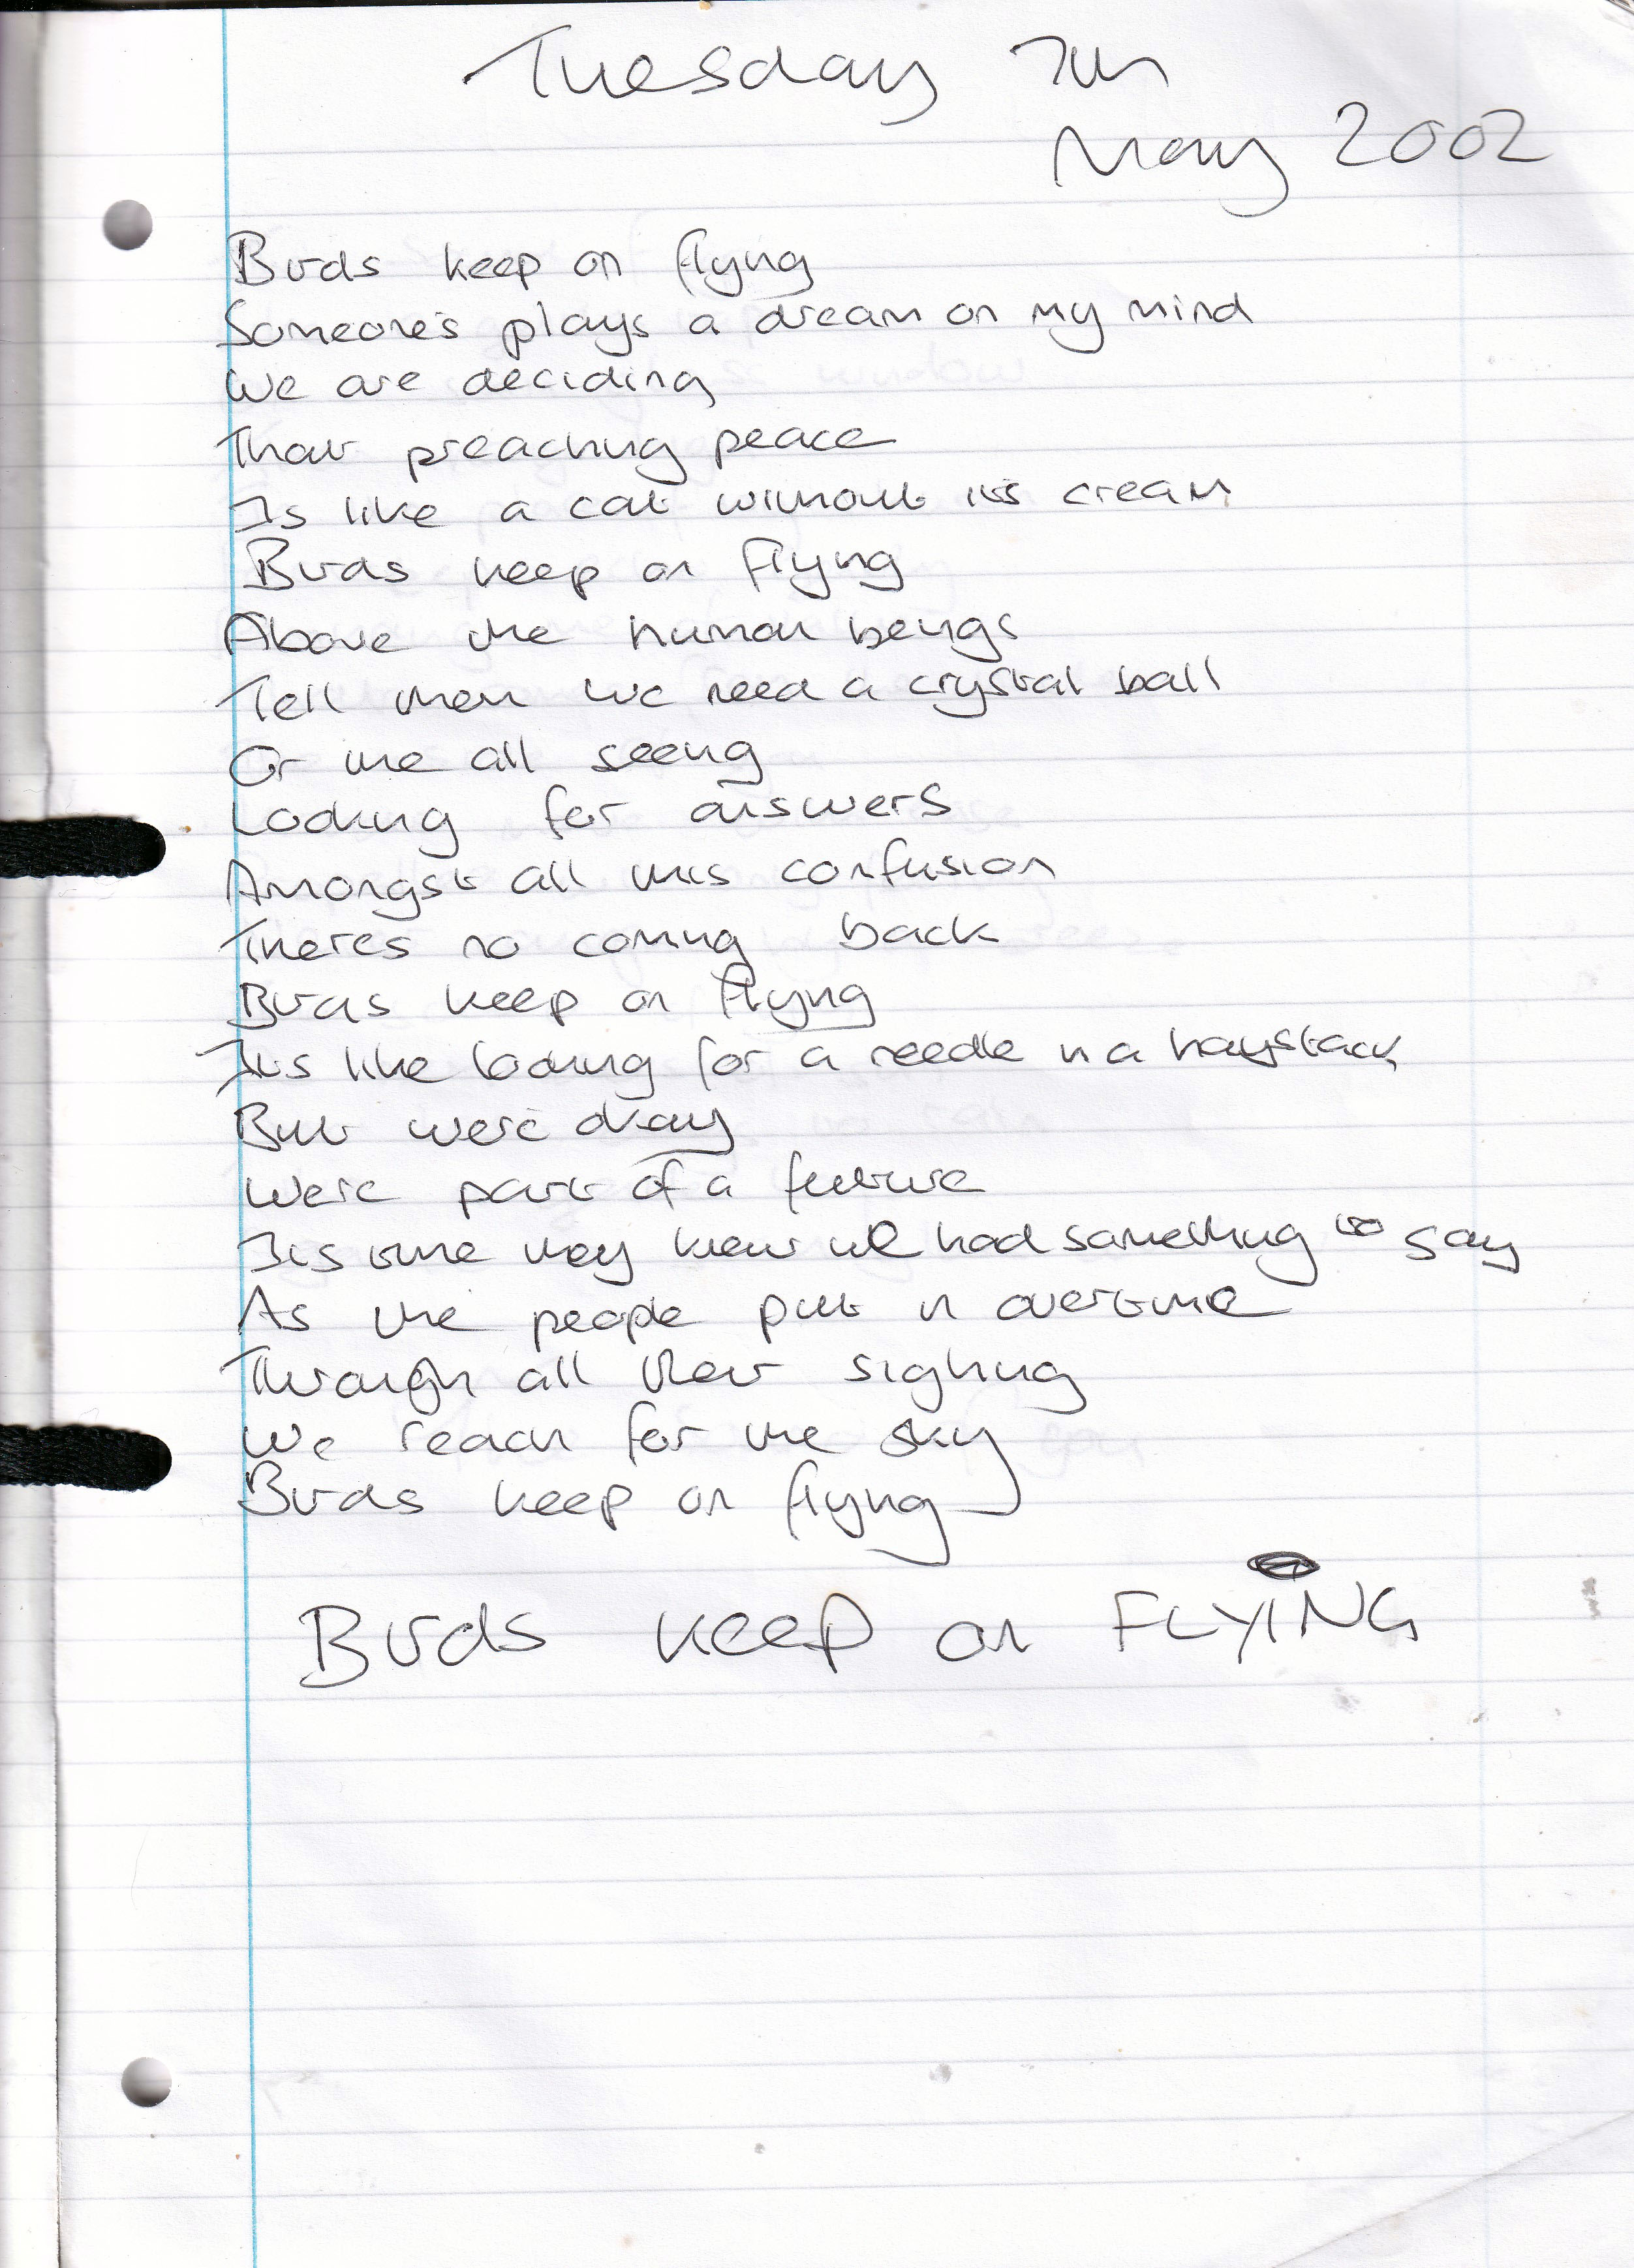 Tuesday 7th
May 2002
Birds keep on flying
Someone's plays a dream on my mind
We are deciding
That preaching peace
Is like a cat without its cream
Birds keep on flying
Above the human beings
Tell them we need a crystal ball
Or the all seeing
Looking for answers
Amongst all this confusion
Theres no coming back
Birds keep on flying
Its like looking for a needle in a haystack
But were okay
Were part of a future
Its time they knew we had something to say
As the people put in overtime
Through all their sighing
We reach for the sky
Birds keep on flying
Birds keep on FLYING